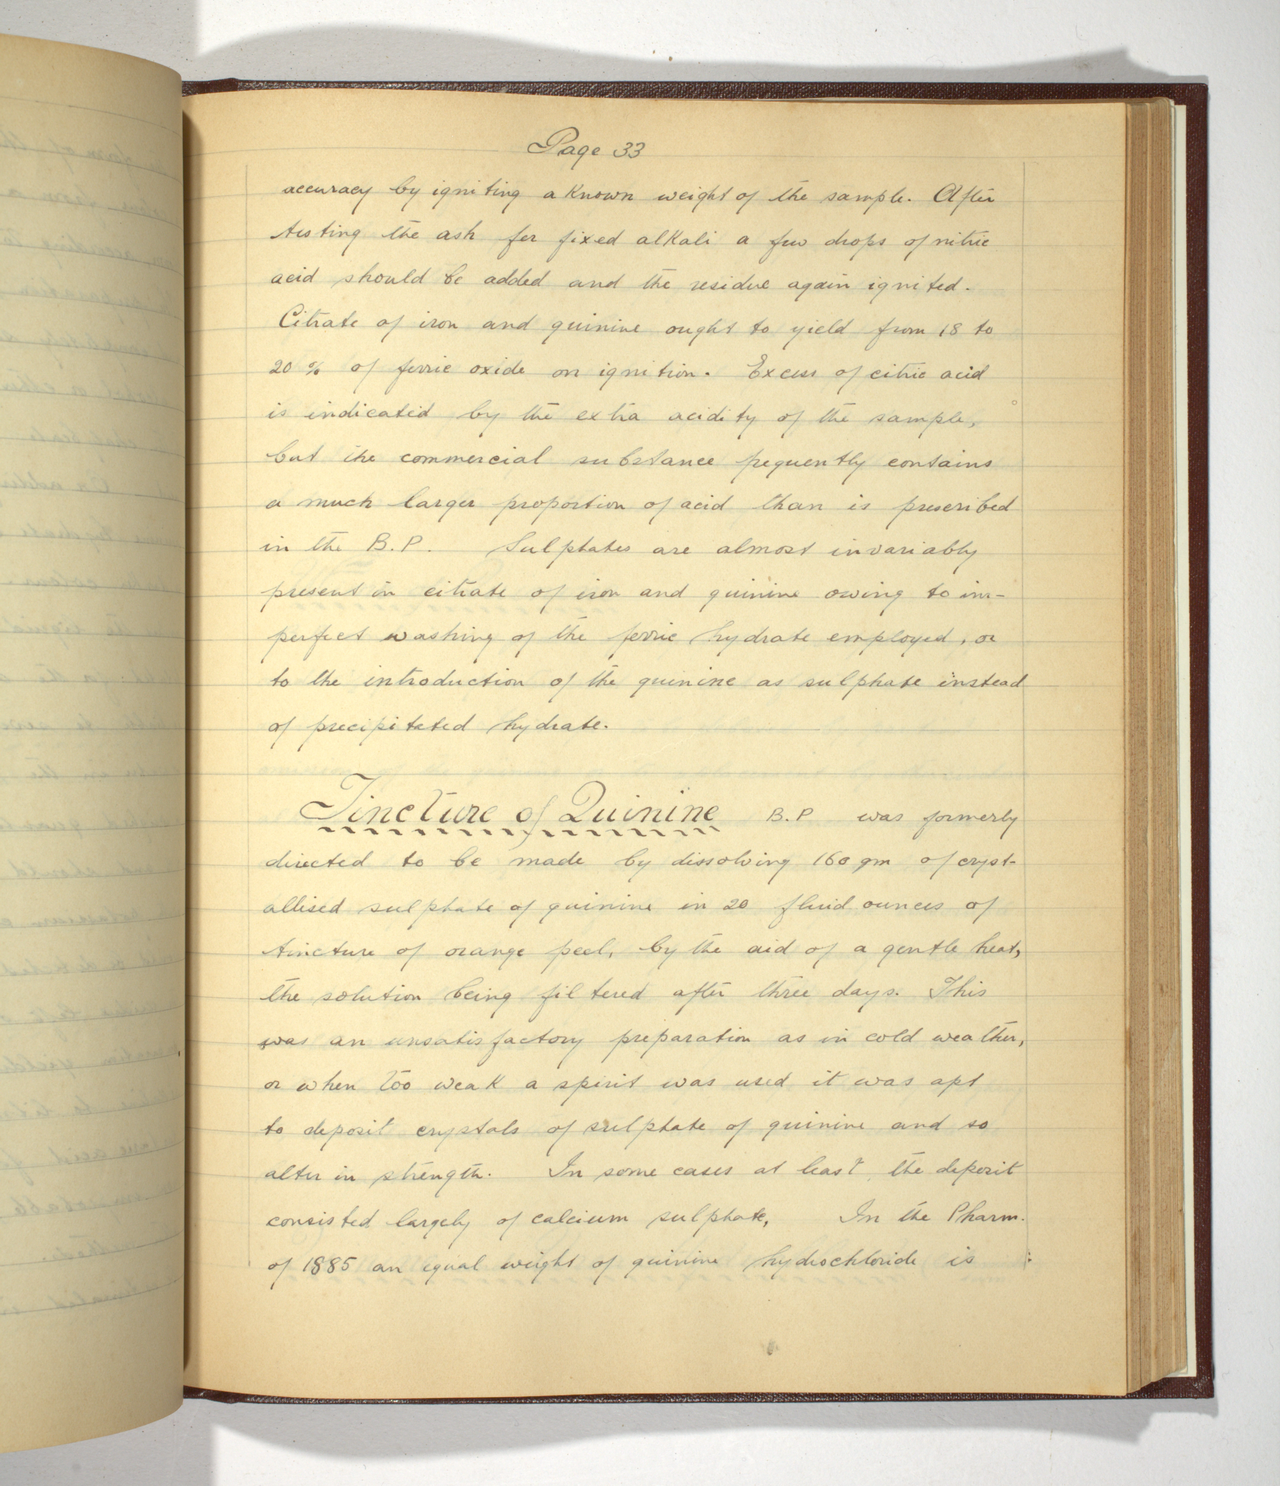 Page 33
accuracy by igniting a known weight of the sample. After
testing the ash for fixed alkali a few drops of nitric
acid should be added and the residue again ignited.
Citrate of iron and quinine ought to yield from 18 to
20 % of ferric oxide on ignition. Excess of citric acid
is indicated by the extra acidity of the sample,
but the commercial substance frequently contains
a much larger proportion of acid than is prescribed
in the B.P. Sulphates are almost invariably
present in citrate of iron and quinine owing to im-
perfect washing of the ferric hydrate employed, or
to the introduction of the quinine as sulphate instead
of precipitated hydrate.
Tincture of Quinine B.P was formerly
directed to be made by dissolving 160 gm of cryst-
allised sulphate of quinine in 20 fluid ounces of
tincture of orange peel, by the aid of a gentle heat,
the solution being filtered after three days. This
was an unsatisfactory preparation as in cold weather,
or when too weak a spirit was used it was apt
to deposit crystals of sulphate of quinine and so
alter in strength. In some cases at least, the deposit
consisted largely of calcium sulphate, In the Pharm.
of 1885 an equal weight of quinine hydrochloride is